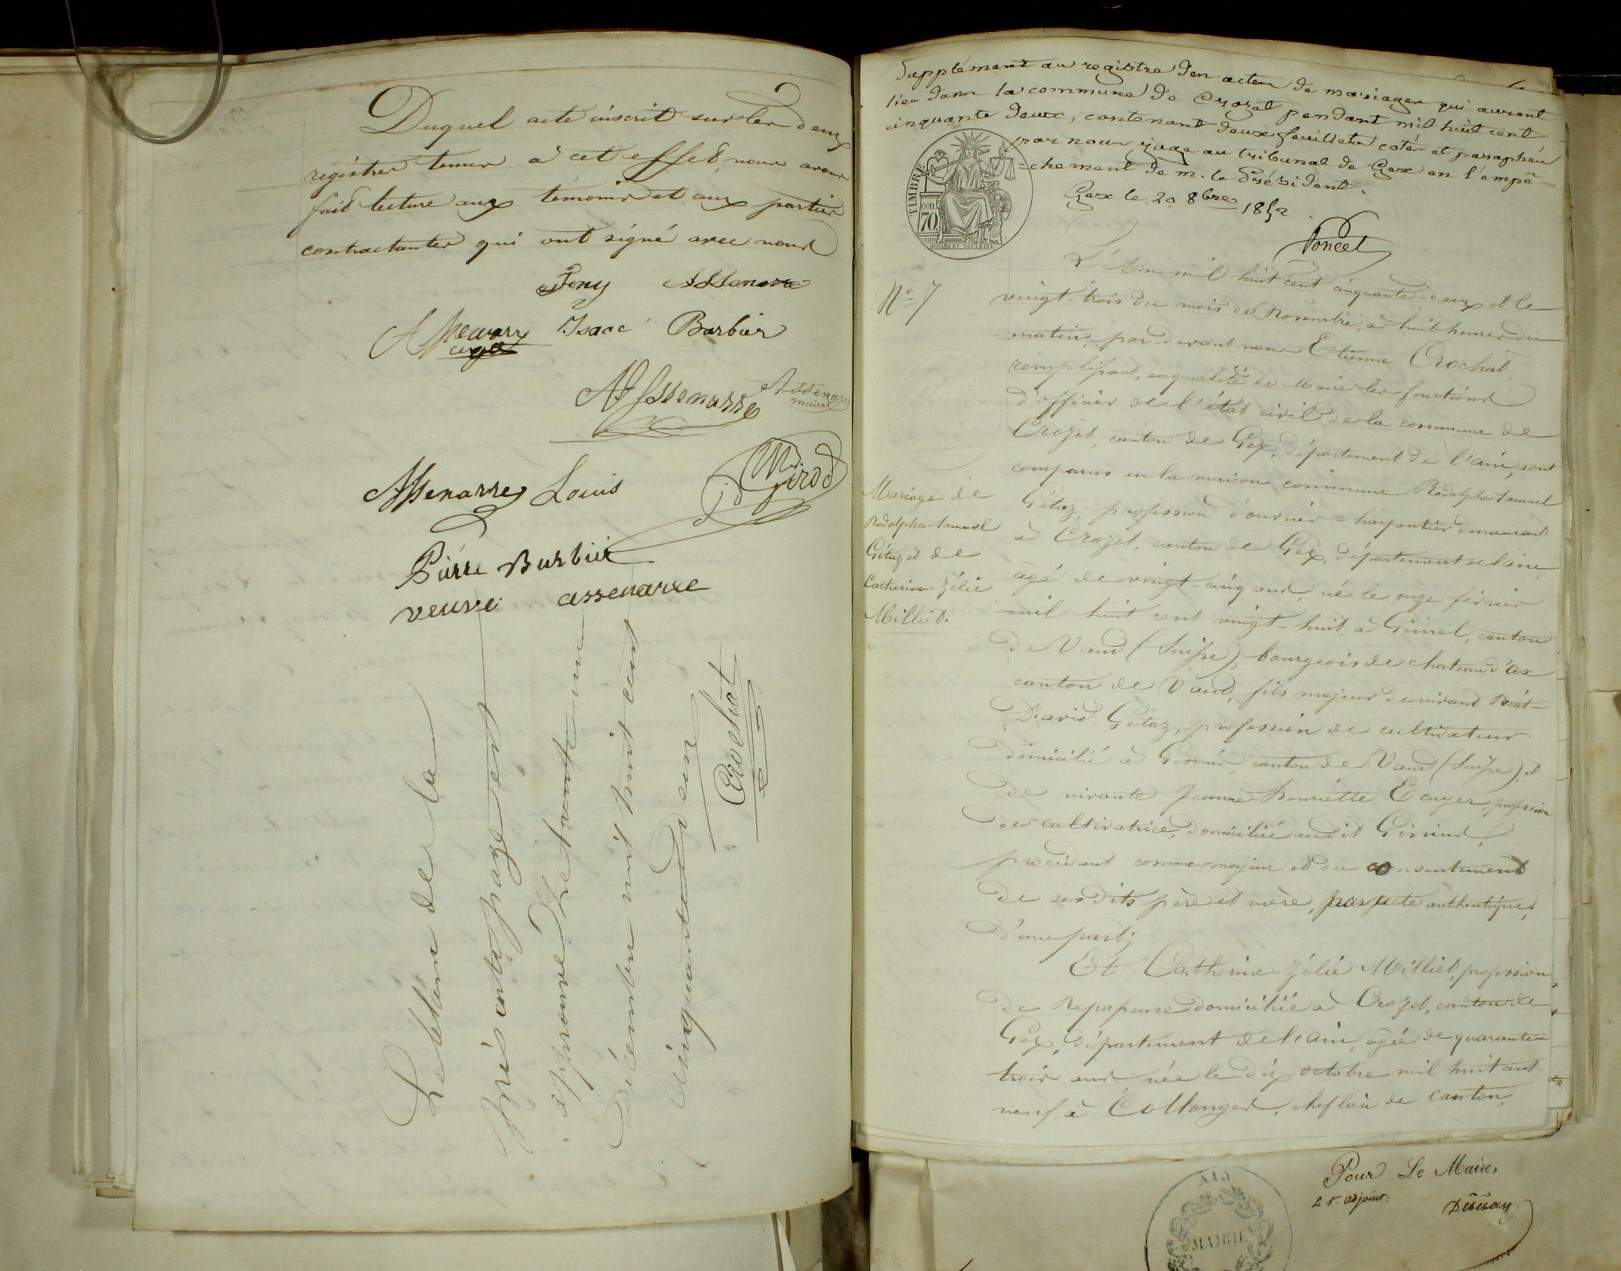 Duquel acte inscrit sur les deux
registres tenus à cet effet, nous avons
fait lecture aux témoins et aux parties
contractantes qui ont signé avec nous
Isaac Barbier
Assenarre Louis
Girod
Pierre Barbier
veuve assenarre
Le bâtoné de la
présente page est
approuvé le trente un
décembre mil huit cent
cinquante deux
Crochat
Supplément au registre des actes de mariages qui auront
lieu dans la commune de Crozet pendant mil huit cent
cinquante deux, contenant deux feuillets cotés et paraphés
par nous juge au tribunal de Gex en l'empê-
chement de m. le Président.
Gex le 20 8bre 1852.
Poncet
TIMBRE
70
L'An mil huit cent cinquante-deux et le
N° 7
vingt-trois du mois de Novembre, à huit heures du
matin, par-devant nous Etienne Crochat
remplissant, en qualité de Maire les fonctions
d'officier de l'état civil de la commune de
Crozet, canton de Gex, département de l'ain, sont
comparus en la maison commune Rodolphe-Samuel
Mariage de
Rodolphe-Samuel
Gétaz et de
Catherine Zélie
Milliet.
Gétaz, profession d'ouvrier charpentier demeurant
à Crozet, canton de Gex, département de l'ain,
âgé de vingt-cinq ans, né le onze février
mil huit cent vingt-huit, à Gimel, canton
de Vaud (Suisse), bourgeois de chateau d'aex
canton de Vaud, fils majeur de vivant Béat-
David Gétaz, profession de cultivateur
domicilié à canton de Vaud (Suisse), et
de vivante Jeanne Henriette profession
de cultivatrice, domiciliée audit
procédant comme majeur et du consentement
de ses dits père et mère, par acte authentique,
D'une part;
Et Catherine Zélie Milliet, profession
de Repasseuse domiciliée à Crozet, canton de
Gex, département de l'ain, âgée de quarante-
trois ans née le dix octobre mil huit cent
neuf à Collonges, chef lieu de canton,
Pour Le Maire,
L'adjoint:
MAIRIE